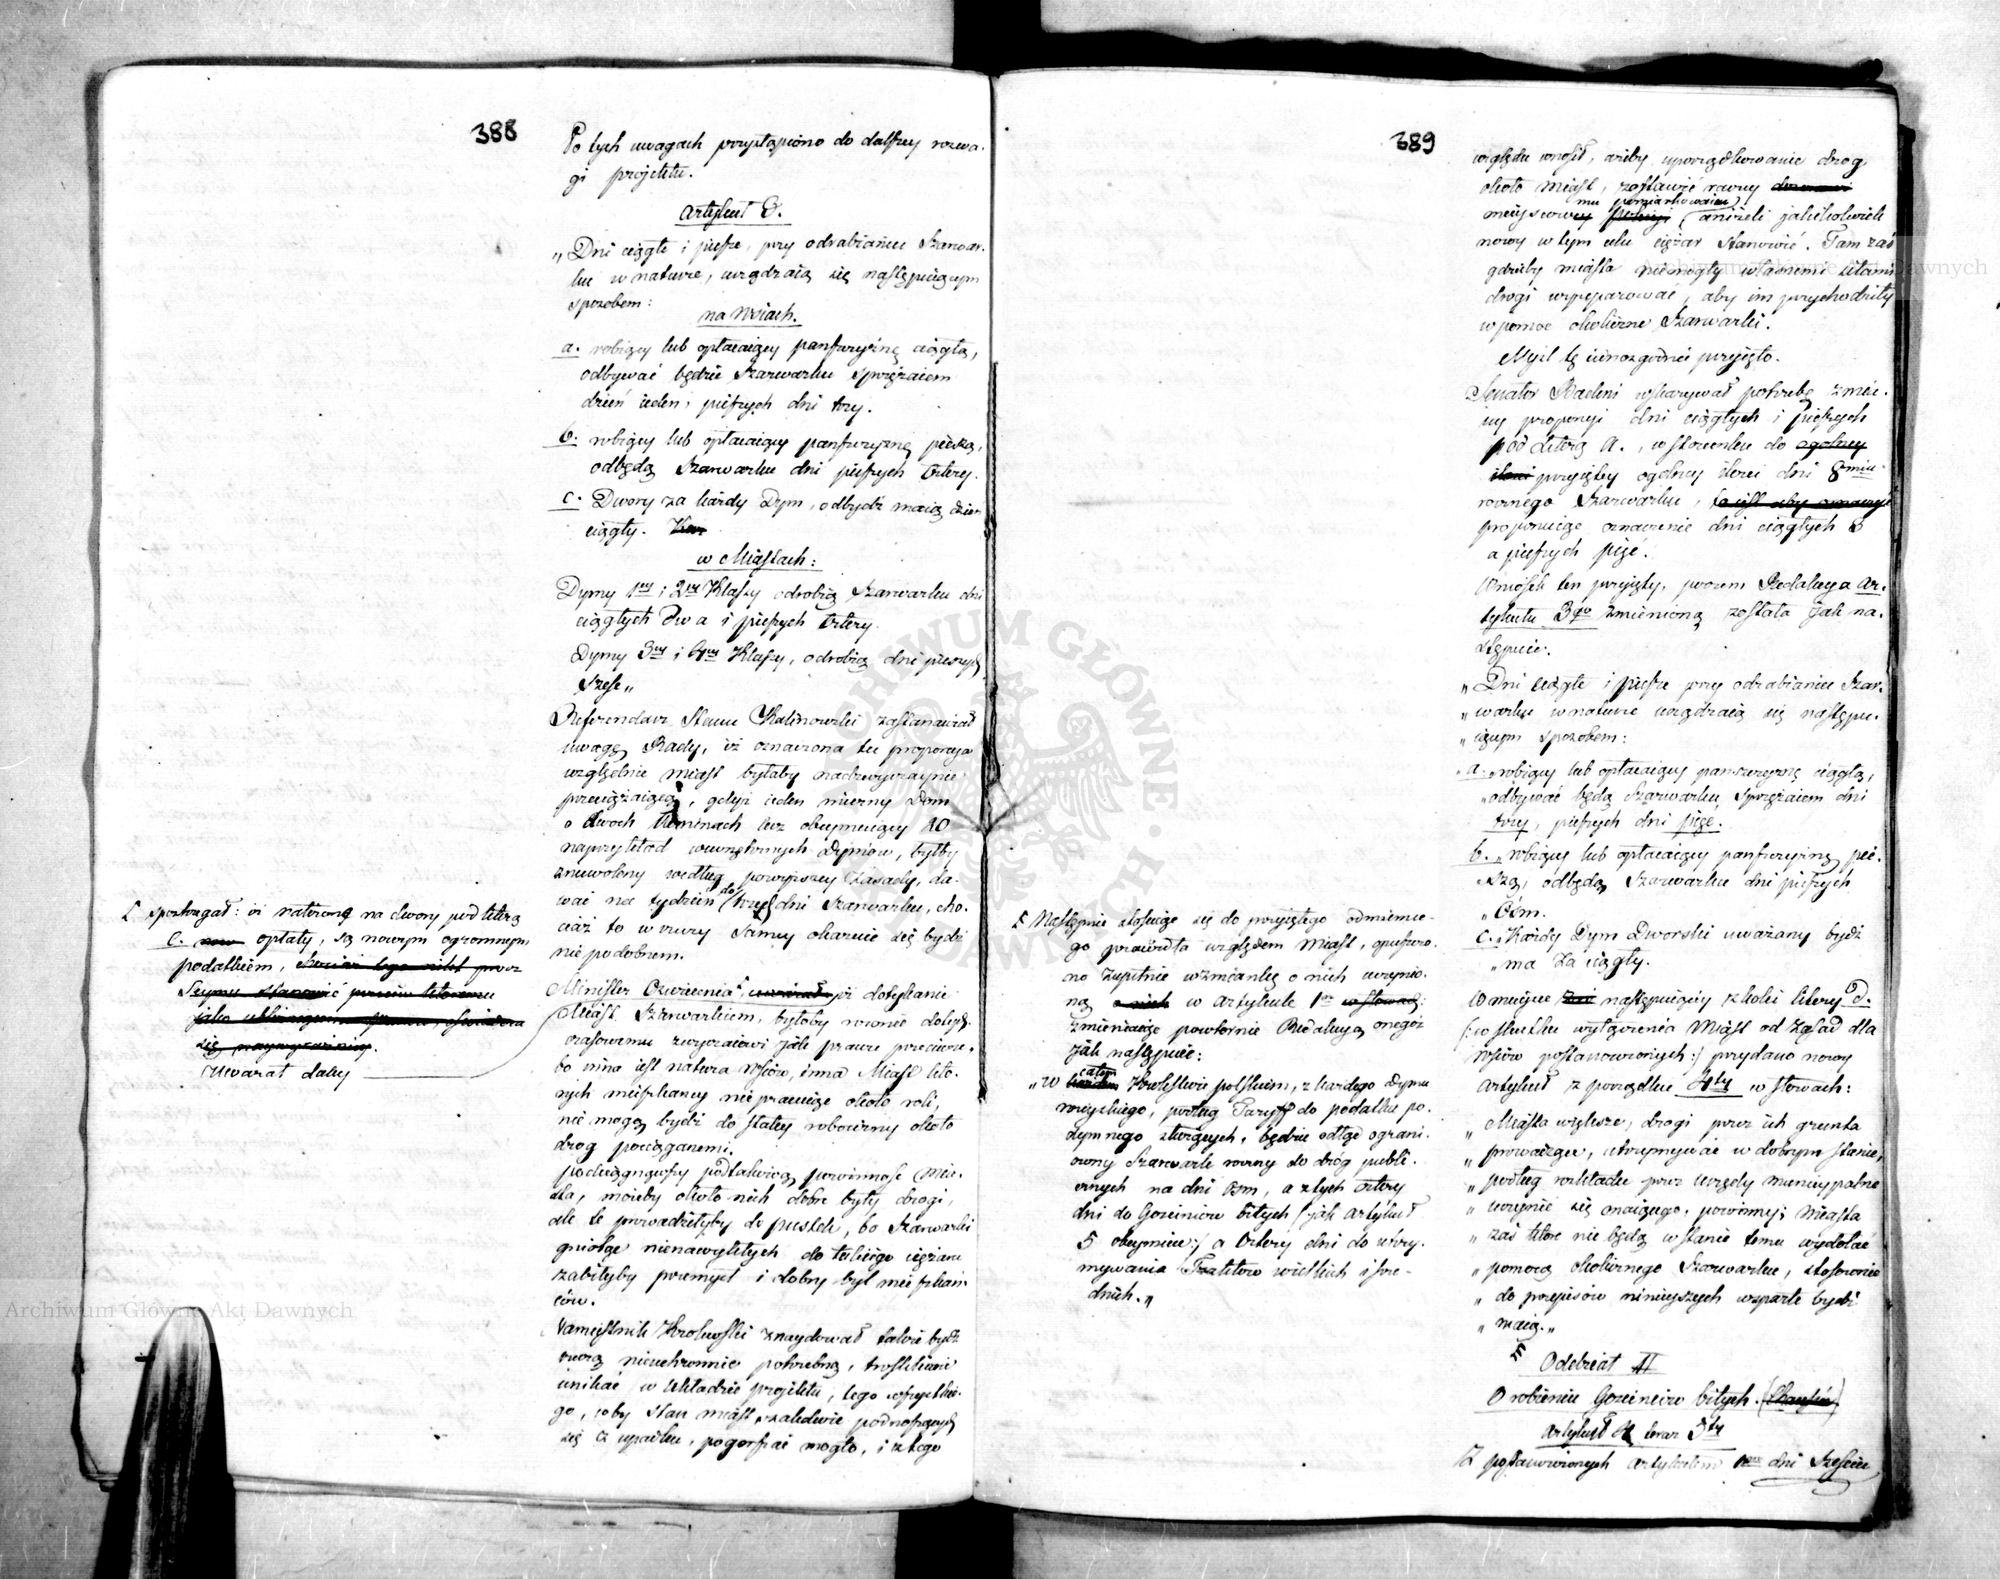 388
Po tych uwagach przystąpiono do dalszey rozwa-
gi projektu.
Artykuł 3.
„Dni ciągłe i piesze, przy odrabianiu Szarwar-
ku w naturze, urządzaią się następuiącym
sposobem:
na Wsiach.
a. robiący lub opłacaiący panszczyznę ciągłą,
odbywać będzie Szarwarku sprzężaiem
dzień ieden, pieszych dni trzy.
b. robiący lub opłacaiący panszczyznę pieszą,
odbędą Szarwarku dni pieszych cztery.
c. Dwory za każdy Dym, odbydź maią dzień
ciągły.
w Miastach:
Dymy 1ey i 2ey Klassy odrobią Szarwarku dni
ciągłych dwa i pieszych cztery.
Dymy 3ey i 4ey Klassy, odrobią dni pieszych
sześć„
Referendarz Stanu Kalinowski zastanawiał
uwagę Rady, iż oznaczona tu proporcya
względnie miast byłaby nadzwyczaynie
przeciążaiącą, gdyż ieden mierny Dom
o dwoch kominach lecz obeymuiący 20
naprzykład wewnętrznych Dymów, byłby
zniewolony według powyższey zasady, da-
wać na tydzień do trzech dni Szarwarku, cho-
ciaż to w rzeczy samey okazuie się bydź
niepodobnem.
[ spostrzegał: iż nałożone na dwory pod literą
c. opłaty, są nowym ogromnym
podatkiem, chociaż tego nikt przez
Seymu stanowić
się naywyraźniey.
Uważał daley
Minister Oświecenia, uważał iż dotykanie
Miast Szarwarkiem, byłoby równie dotych-
czasowemu zwyczaiowi jak prawu przeciwne,
bo inna iest natura Wsiów, inna Miast któ-
rych mieszkancy nie pracuiąc około roli,
nie mogą bydź do stałey robocizny około
drog pociąganemi.
pociągnąwszy pod takową powinność Mia-
sta, możeby około nich dobre były drogi,
ale te prowadziłyby do pustek, bo Szarwarki
gniotąc nienawykłych do takiego ciężaru
zabiłyby przemysł i dobry byt mieszkań-
ców.
Namiestnik Krolewski znaydował także bydź
rzeczą nieuchronnie potrzebną, troskliwie
unikać w układzie projektu, tego wszystkie-
go, coby stan miast zaledwie podnoszących
się z upadku, pogorszać mogło, i z tego
389
względu wnosił, ażeby uporządkowanie drog
około miast, zostawić raczey
mu pomiarkowaniu
mieyscowey (aniżeli jakikolwiek
nowy w tym celu ciężar stanowić. Tam zaś
gdzieby miasta niemogły własnemi siłami
drogi wyreparować, aby im przychodziły
w pomoc okoliczne Szarwarki.
Myśl tę iednozgodnie przyięto.
Senator Badeni wskazywał potrzebę zmia-
ny proporcyi dni ciągłych i pieszych
pod Literą A., w stosunku do ogolney
ilości przyiętey ogolney ilości dni 8miu
rocznego Szarwarku,
proponuiąc oznaczenie dni ciągłych 3
a pieszych pięć.
Wniosek ten przyięty, poczem Redakcya Ar-
tykułu 3go zmienioną została jak na-
stępuie.
„Dni ciągłe i piesze przy odrabianiu Szar-
„warku w naturze urządzaią się następu-
„iącym sposobem:
„a. „robiący lub opłacaiący panszczyznę ciągłą,
„odbywać będą Szarwarku sprzężaiem dni
trzy, pieszych dni pięć.
b. „robiący lub opłacaiący panszczyznę pie-
szą, odbędą Szarwarku dni pieszych
„Ośm.
c. „Każdy Dym Dworski uważany bydź
„ma za ciągły.
W mieysce następuiącey z kolei litery D.
(:w skutku wyłączenia Miast od Zasad dla
Wsiów postanowionych:) przydano nowy
Artykuł z porządku 4ty w słowach:
„Miasta większe, drogi przez ich grunta
„prowadzące, utrzymywać w dobrym stanie,
„podług rozkładu przez Urzędy municypalne
„uczynić się maiącego, powinny; Miasta
„zaś które nie będą w stanie temu wydołać
„pomocą okolicznego Szarwarku, stosownie
„do przepisów ninieyszych wsparte bydź
„maią.„
[ Następnie stosuiąc się do przyiętego odmienne-
go prawidła względem Miast, opuszczo-
no zupełnie wzmiankę o nich uczynio-
ną o nich w Artykule 1m w słowach:
zmieniaiąc powtórnie Redakcyą onegoż
jak następuie:
„W całem Krolestwie polskiem, z każdego dymu
wieyskiego, podług Taryff do podatku po-
dymnego służących, będzie odtąd ograni-
czony Szarwark roczny do dróg publi-
cznych na dni ośm, a z tych cztery
dni do Gościniców bitych (jak Artykuł
5 obeymuie:) a cztery dni do utrzy-
mywania Traktów wielkich i śre-
dnich.„
Oddział II
O robieniu Gościnców bitych.
Artykuł 4 teraz 5ty
Z postanowionych Artykułem 1m dni Sześciu